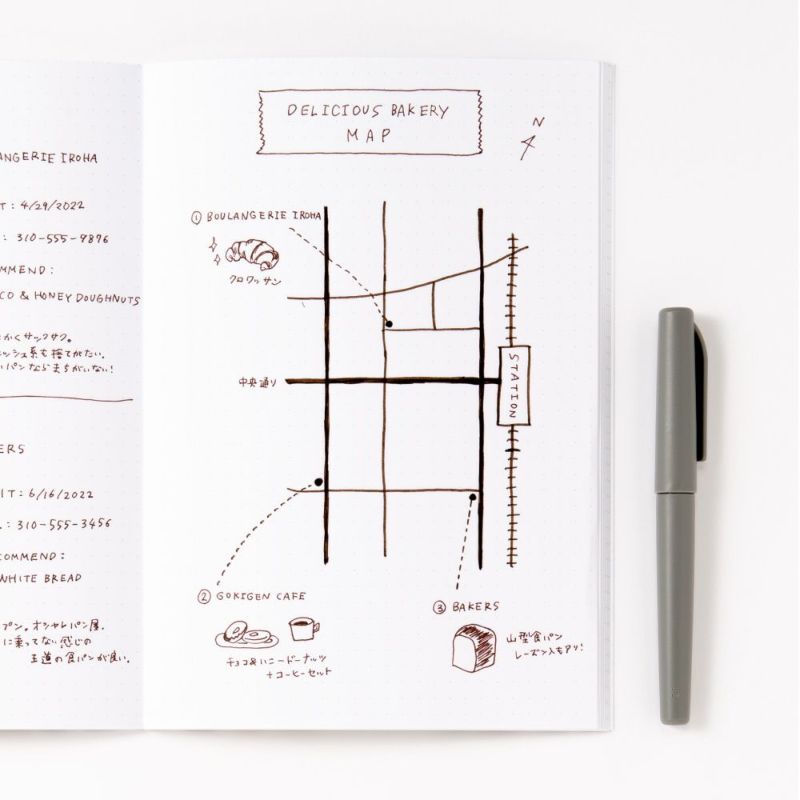 ANGERIE IROHA
T : 4/29/2022
: 310-555-9876
MMEND :
CO & HONEY DOUGHNUTS
かくサックサク。
ッシュ系も捨てがたい。
いパンならまちがいない!
ERS
IT : 6/16/2022
: 310-555-3456
COMMEND :
WHITE BREAD
プン。オシャレパン屋。
に乗ってない感じの
王道の食パンが良い。
DELICIOUS BAKERY
MAP
N
① BOULANGERIE IROHA
クロワッサン
中央通り
STATION
② GOKIGEN CAFE
チョコ&ハニードーナルツ
+コーヒーセット
③ BAKERS
山型食パン
レーズン入もアリ!